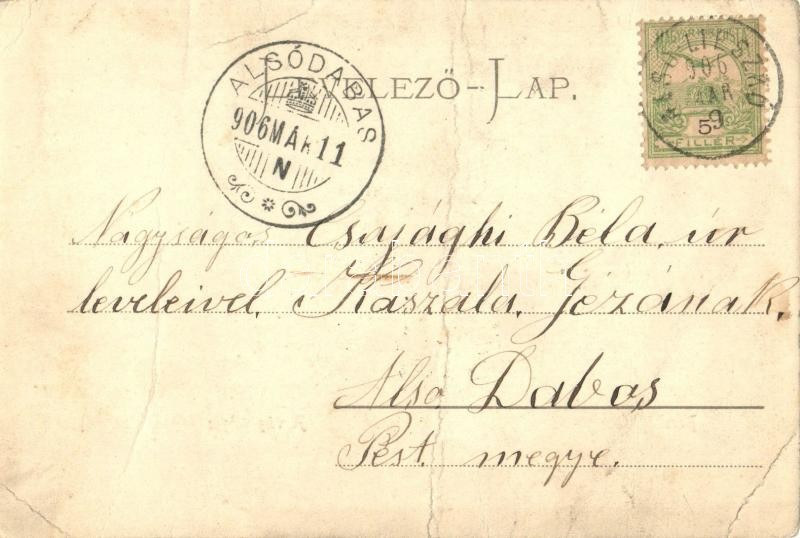 LEVELEZŐ-LAP.
ALSÓDABAS
906 MÁR 11
N
906
MAR
9
5
FILLÉR
Nagyságos Csajághi Béla, úr
leveleivel, Kaszala, Gézának,
Alsó Dabas,
Pest. megye.